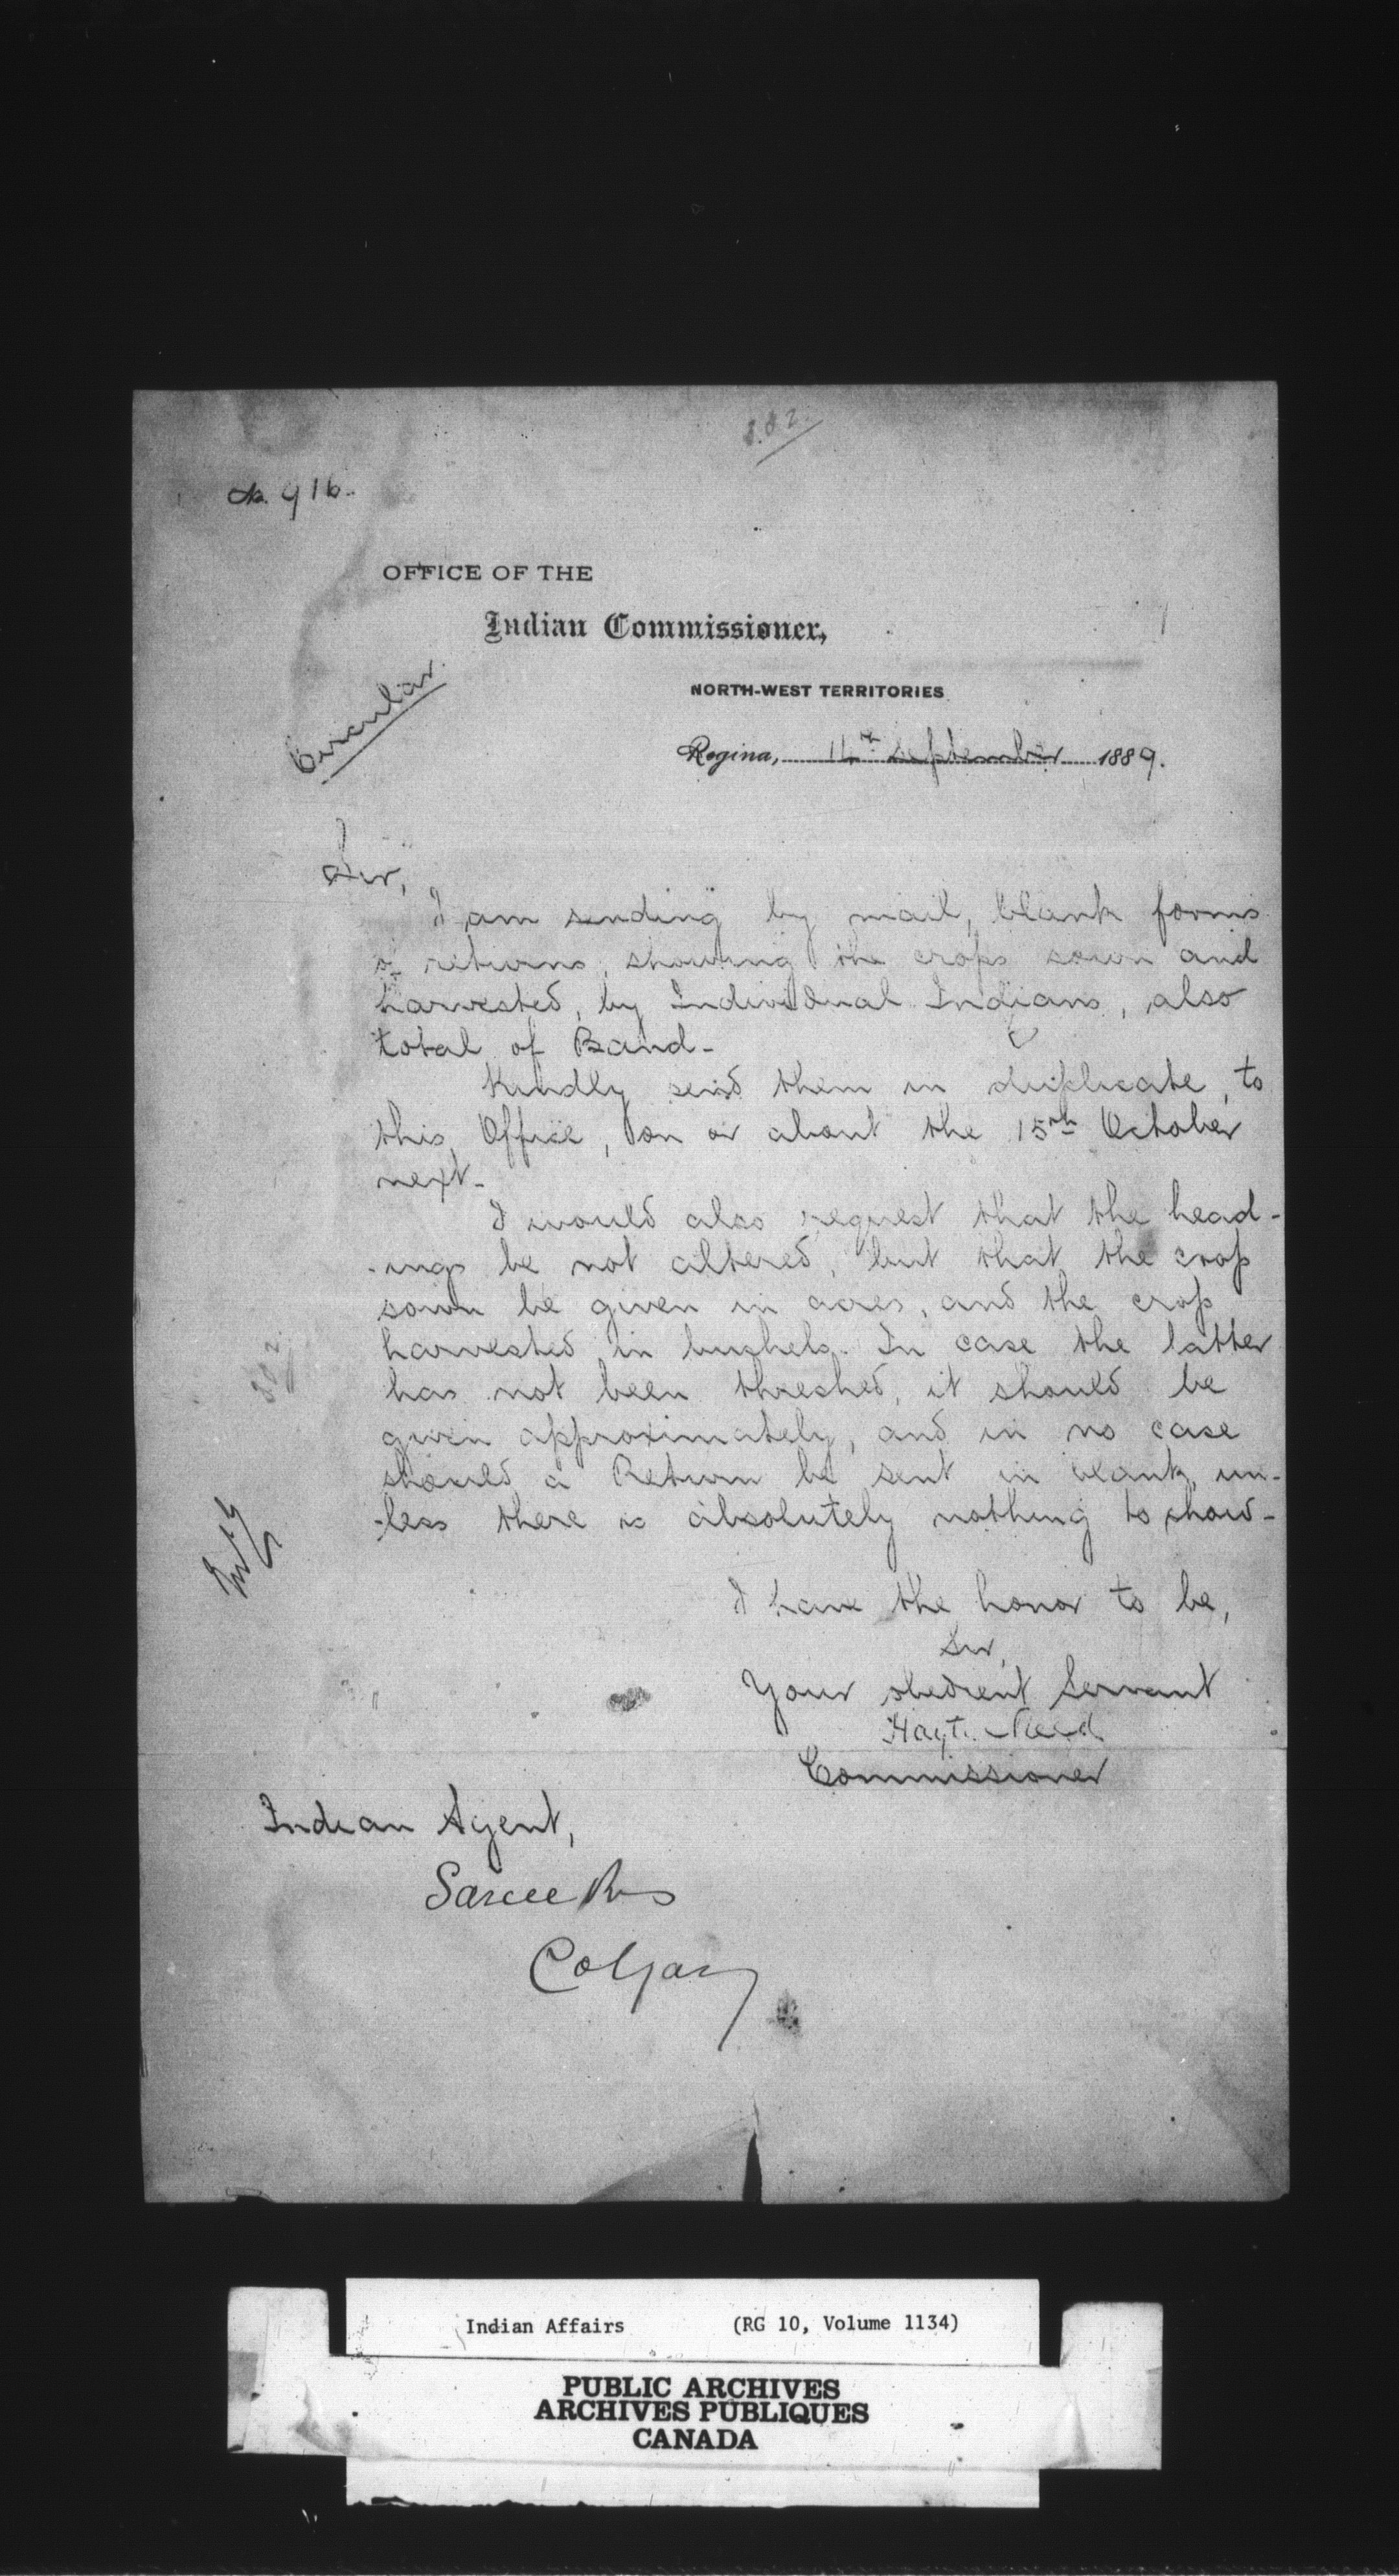 882.
No. 916.
OFFICE OF THE
Indian Commissioner,
NORTH-WEST TERRITORIES
Circular.
Regina, 14th September 1889.
Sir,
I am sending by mail, blank forms
of returns, showing the crops sown and
harvested, by Individual Indians, also
total of Band-
Kindly send them in duplicate, to
this Office, on or about the 15th October
next-
I would also request that the head-
-ings be not altered, but that the crop
sown be given in acres, and the crop
harvested in bushels. In case the latter
has not been threshed, it should be
given approximately, and in no case
should a Return be sent in blank, un-
-less there is absolutely nothing to show-
882
I have the honor to be,
Sir,
Your obedient Servant
Hayt. Reed
Commissioner
Indian Agent,
Sarcee Res
Calgary
Indian Affairs (RG 10, Volume 1134)
PUBLIC ARCHIVES
ARCHIVES PUBLIQUES
CANADA